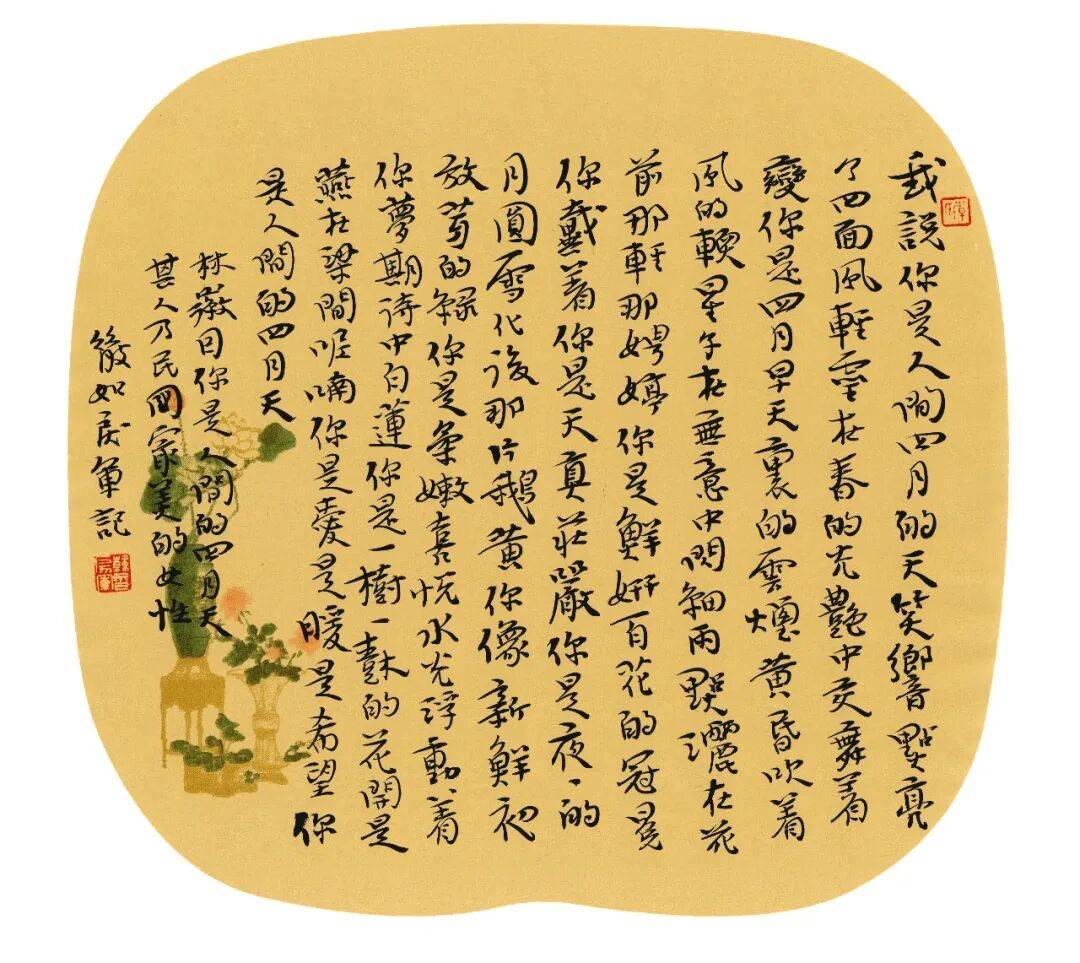 我說你是人间四月的天笑響點亮
了四面風輕靈在春的光艷中交舞着
變你是四月早天裏的雲煙黄昏吹着
風的軟星子在無意中閃細雨點灑在花
前那輕那娉婷你是鮮妍百花的冠冕
你戴着你是天真莊嚴你是夜、的
月圓雪化後那片鵝黄你像新鮮初
放芽的緑你是柔嫩喜悦水光浮動着
你夢期詩中白蓮你是一樹一樹的花開是
燕在梁間呢喃你是愛是暖是希望你
是人間的四月天
林徽因你是人間的四月天
其人乃民國家美的女性
如居軍記